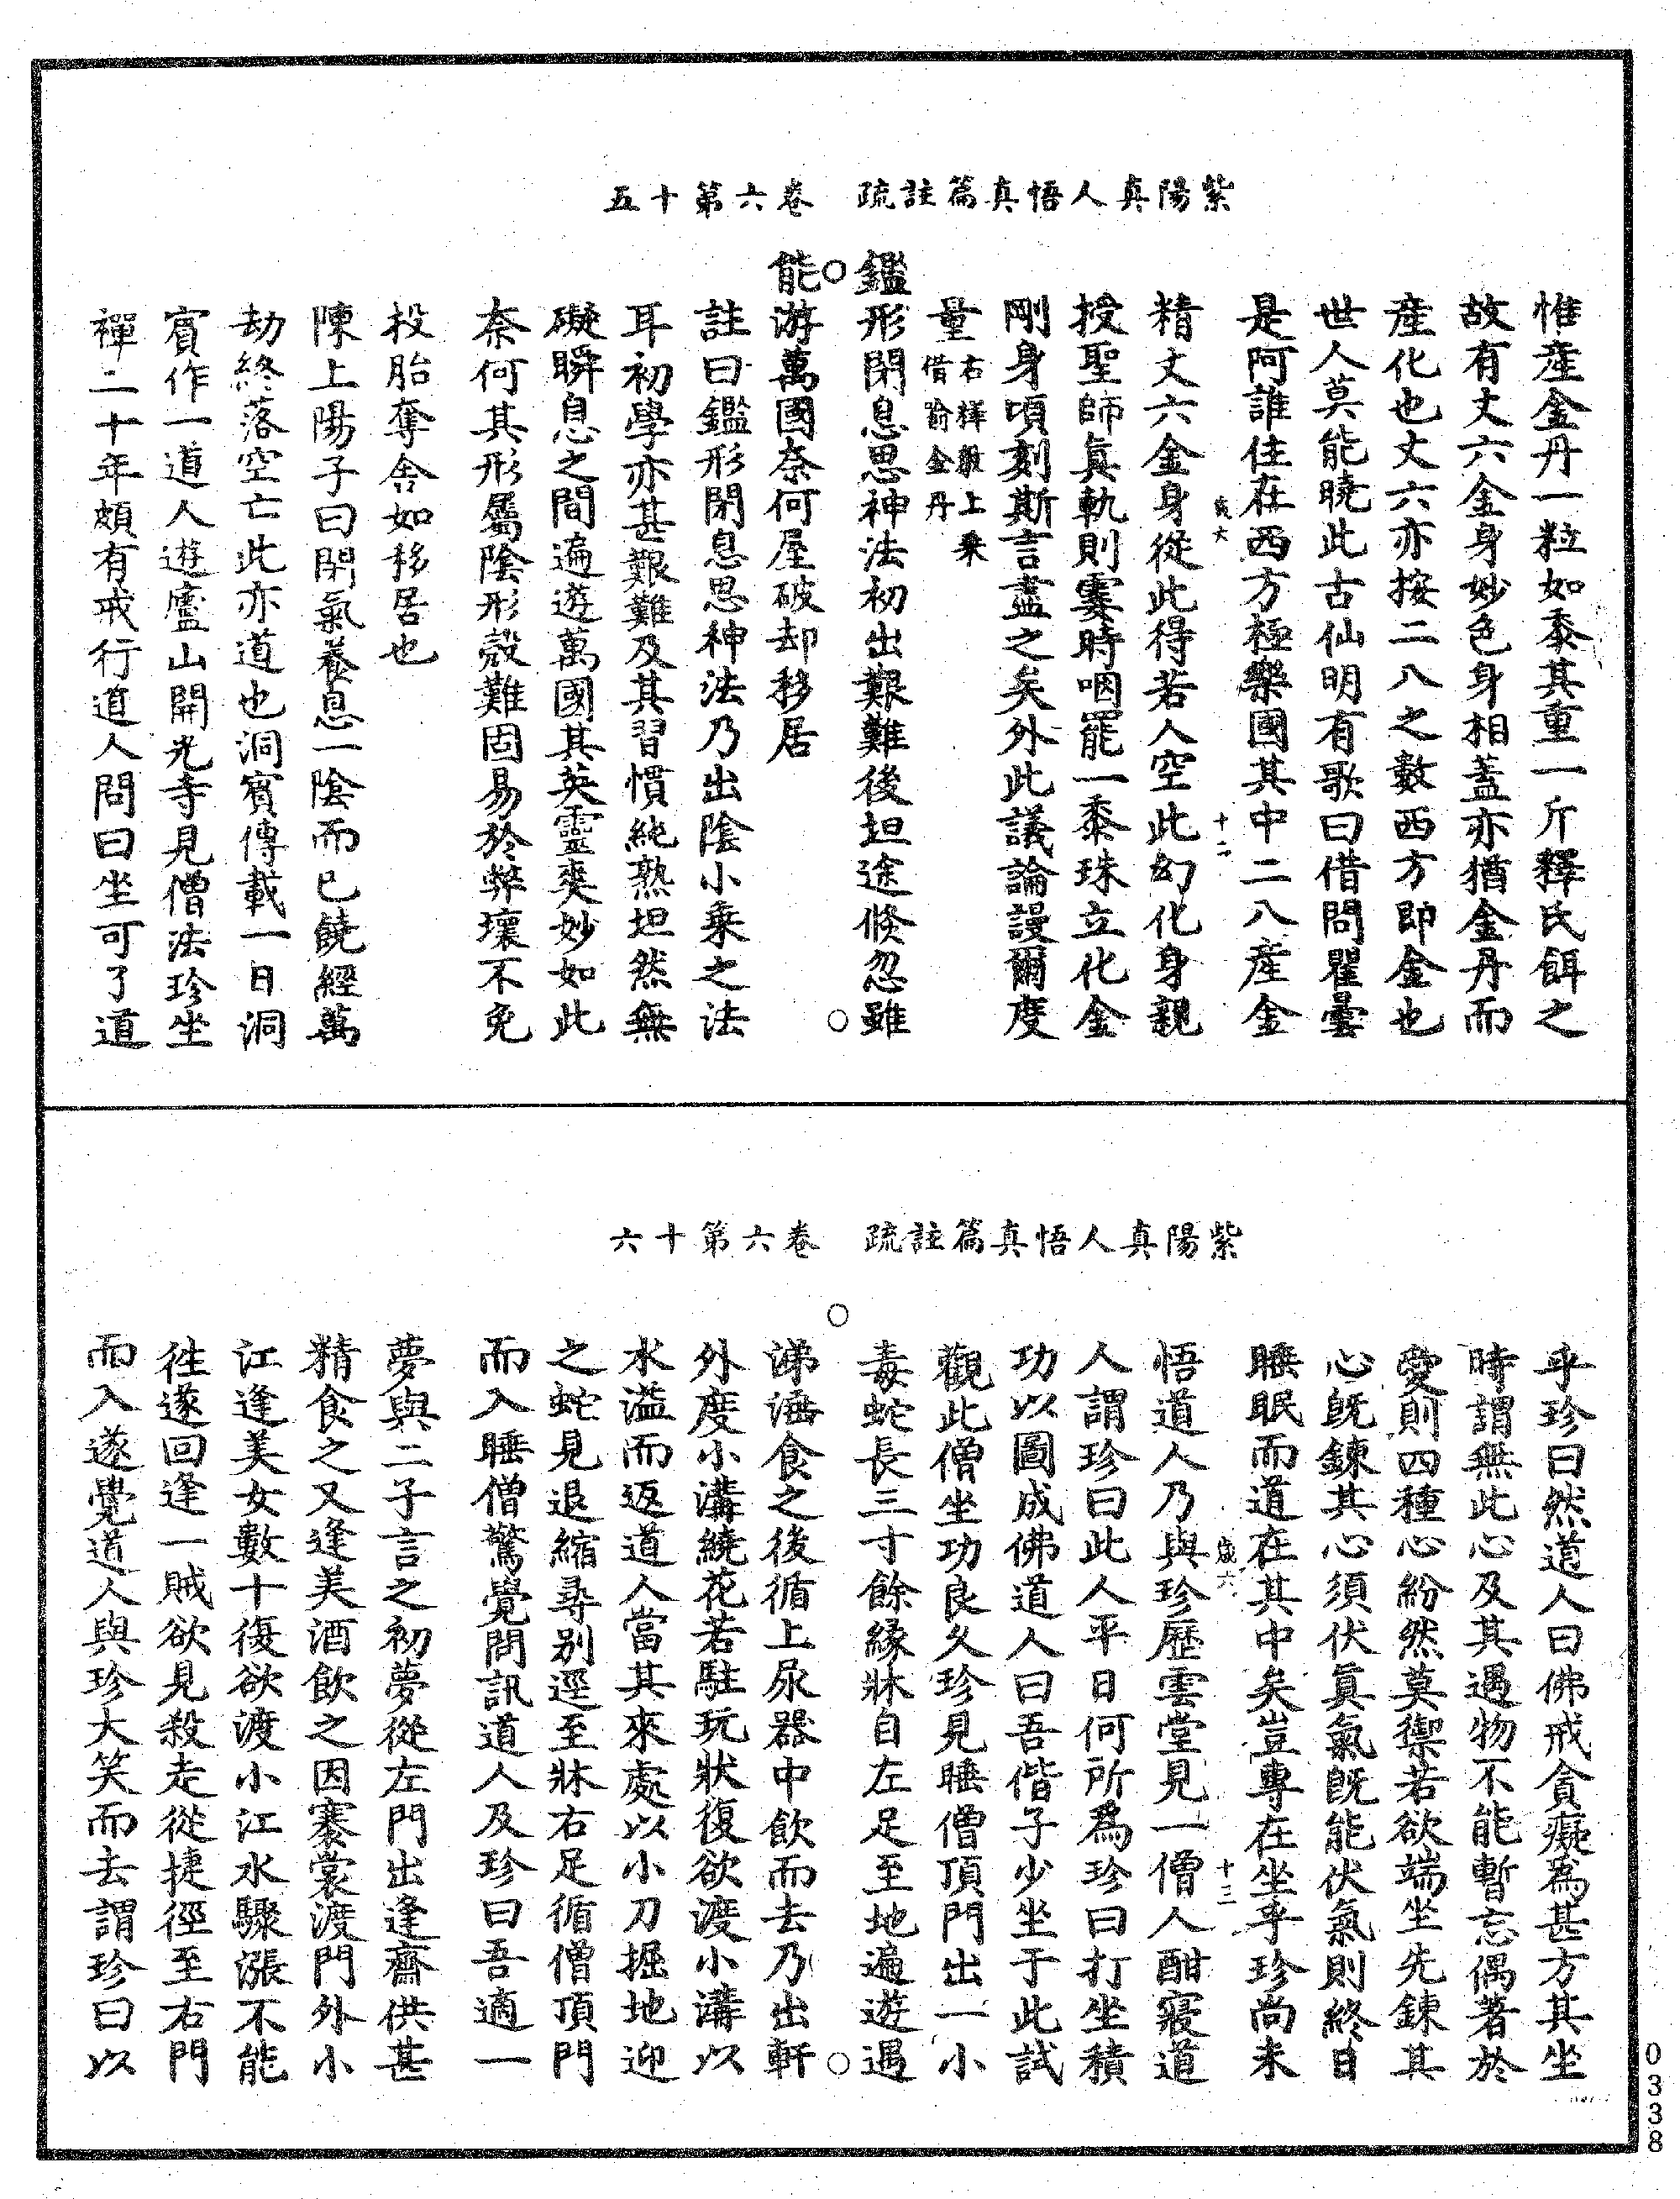 紫陽真人悟真篇註疏　卷六第十五
惟産金丹一粒如黍其重一斤釋氏餌之
故有丈六金身妙色身相盖亦猶金丹而
産化也丈六亦按二八之數西方即金也
世人莫能曉此古仙明有歌曰借問瞿曇
是阿誰住在西方極樂國其中二八産金
十二
精丈六金身從此得若人空此幻化身親
授聖師真軌則霎時咽罷一黍珠立化金
剛身頃刻斯言盡之矣外此議論謾爾度
量右釋教上乘借喻金丹
鑑形閉息思神法初出艱難後坦途倏忽雖
能游萬國奈何屋破却移居
註曰鑑形閉息思神法乃出陰小乘之法
耳初學亦甚艱難及其習慣純熟坦然無
礙瞬息之間遍遊萬國其英靈爽妙如此
奈何其形屬陰形殼難固易於弊壞不免
投胎奪舍如移居也
陳上陽子曰閉氣養息一陰而已饒經萬
劫終落空亡此亦道也洞賓傳載一日洞
賓作一道人遊廬山開光寺見僧法珍坐
禪二十年頗有戒行道人問曰坐可了道
紫陽真人悟真篇註疏　卷六第十六
乎珍曰然道人曰佛戒貪癡爲甚方其坐
時謂無此心及其遇物不能暫忘偶著於
愛則四種心紛然莫禦若欲端坐先錬其
心旣錬其心須伏真氣旣能伏氣則終日
睡眠而道在其中矣豈專在坐乎珍尚未
十三
悟道人乃與珍歷雲堂見一僧人酣寢道
人謂珍曰此人平日何所爲珍曰打坐積
功以圖成佛道人曰吾偕子少坐于此試
觀此僧坐功良久珍見睡僧頂門出一小
毒蛇長三寸餘緣牀自左足至地遍遊遇
涕洟食之後循上尿器中飲而去乃出軒
外度小溝繞花若駐玩狀復欲渡小溝以
水溢而返道人當其來處以小刀掘地迎
之蛇見退縮尋别逕至牀右足循僧頂門
而入睡僧驚覺問訊道人及珍曰吾適一
夢與二子言之初夢從左門出逢齋供甚
精食之又逢美酒飲之因褰裳渡門外小
江逢美女數十復欲渡小江江水驟漲不能
徃遂回逢一賊欲見殺走從捷徑至右門
而入遂覺道人與珍大笑而去謂珍曰以
0338